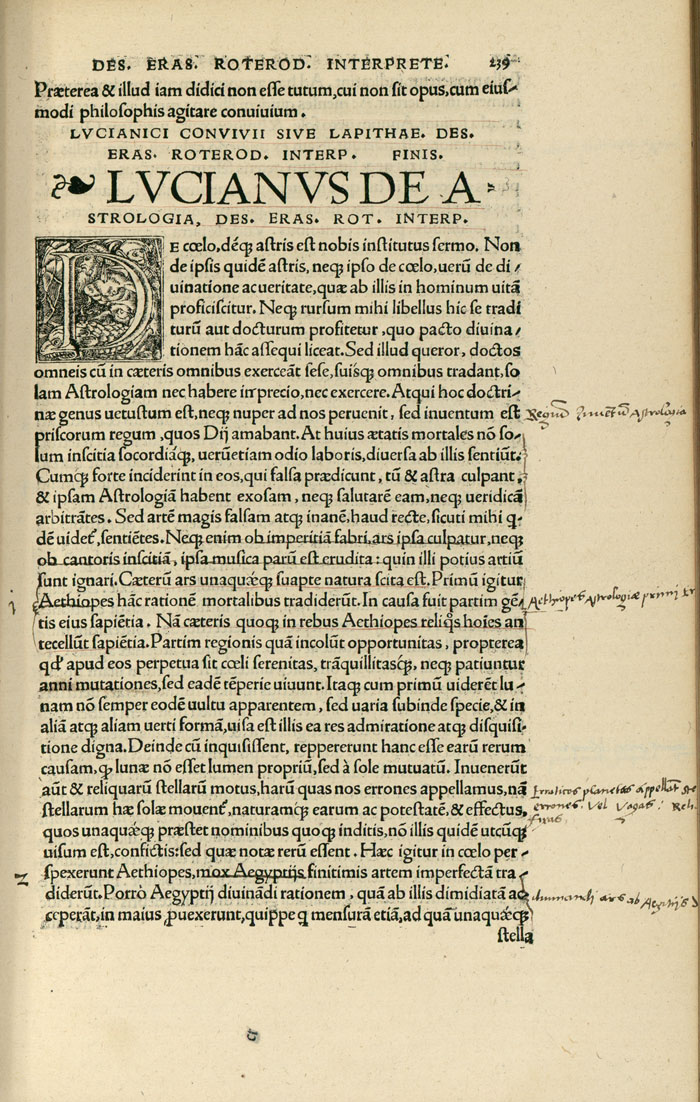 DES. ERAS. ROTEROD. INTERPRETE. 239
Præterea & illud iam didici non esse tutum, cui non sit opus, cum eius⸗
modi philosophis agitare conuiuium.
LVCIANICI CONVIVII SIVE LAPITHAE. DES.
ERAS. ROTEROD. INTERP. FINIS.
LVCIANVS DE A⸗
STROLOGIA, DES. ERAS. ROT. INTERP.
DE cœlo, déq; astris est nobis institutus sermo. Non
de ipsis quidē astris, neq; ipso de cœlo, uerū de di⸗
uinatione ac ueritate, quæ ab illis in hominum uitā
proficiscitur. Neq; rursum mihi libellus hic se tradi
turū aut docturum profitetur, quo pacto diuina⸗
tionem hāc assequi liceat. Sed illud queror, doctos
omneis cū in cæteris omnibus exerceāt sese, suisq; omnibus tradant, so
lam Astrologiam nec habere in precio, nec exercere. Atqui hoc doctri⸗
næ genus uetustum est, neq; nuper ad nos peruenit, sed inuentum est
priscorum regum, quos Dij amabant. At huius ætatis mortales nō so⸗
lum inscitia socordiáq;, uerūetiam odio laboris, diuersa ab illis sentiūt.
Cumq; forte inciderint in eos, qui falsa prædicunt, tū & astra culpant,
& ipsam Astrologiā habent exosam, neq; salutarē eam, neq; ueridicā
arbitrātes. Sed artē magis falsam atq; inanē, haud recte, sicuti mihi q⸗
dē uidet᷑, sentiētes. Neq; enim ob imperitiā fabri, ars ipsa culpatur, neq;
ob cantoris inscitiā, ipsa musica parū est erudita: quin illi potius artiū
sunt ignari. Cæterū ars unaquæq; suapte natura scita est. Primū igitur
Aethiopes hāc rationē mortalibus tradiderūt. In causa fuit partim gē⸗
tis eius sapiētia. Nā cæteris quoq; in rebus Aethiopes reliq̄s hoīes an
tecellūt sapiētia. Partim regionis quā incolūt opportunitas, propterea
qd' apud eos perpetua sit cœli serenitas, trāquillitasq;, neq; patiuntur
anni mutationes, sed eadē tēperie uiuunt. Itaq; cum primū uiderēt lu⸗
nam nō semper eodē uultu apparentem, sed uaria subinde specie, & in
aliā atq; aliam uerti formā, uisa est illis ea res admiratione atq; disquisi⸗
tione digna. Deinde cū inquisissent, reppererunt hanc esse earū rerum
causam, q̄ lunæ nō esset lumen propriū, sed à sole mutuatū. Inuenerūt
aūt & reliquarū stellarū motus, harū quas nos errones appellamus, nā
stellarum hæ solæ mouent᷑, naturamq; earum ac potestatē, & effectus,
quos unaquæq; præstet nominibus quoq; inditis, nō illis quidē utcūq;
uisum est, confictis: sed quæ notæ rerū essent. Hæc igitur in cœlo per⸗
spexerunt Aethiopes, mox Aegyptijs finitimis artem imperfectā tra⸗
diderūt. Porrò Aegyptij diuinādi rationem, quā ab illis dimidiatā ac⸗
ceperāt, in maius ꝓuexerunt, quippe q mensurā etiā, ad quā unaquæq;
stella
Regū Inuētū Astrologia
Aethiopes Astrologiæ primi
planetas appellat
errones. Vel Vagas.
ars ab